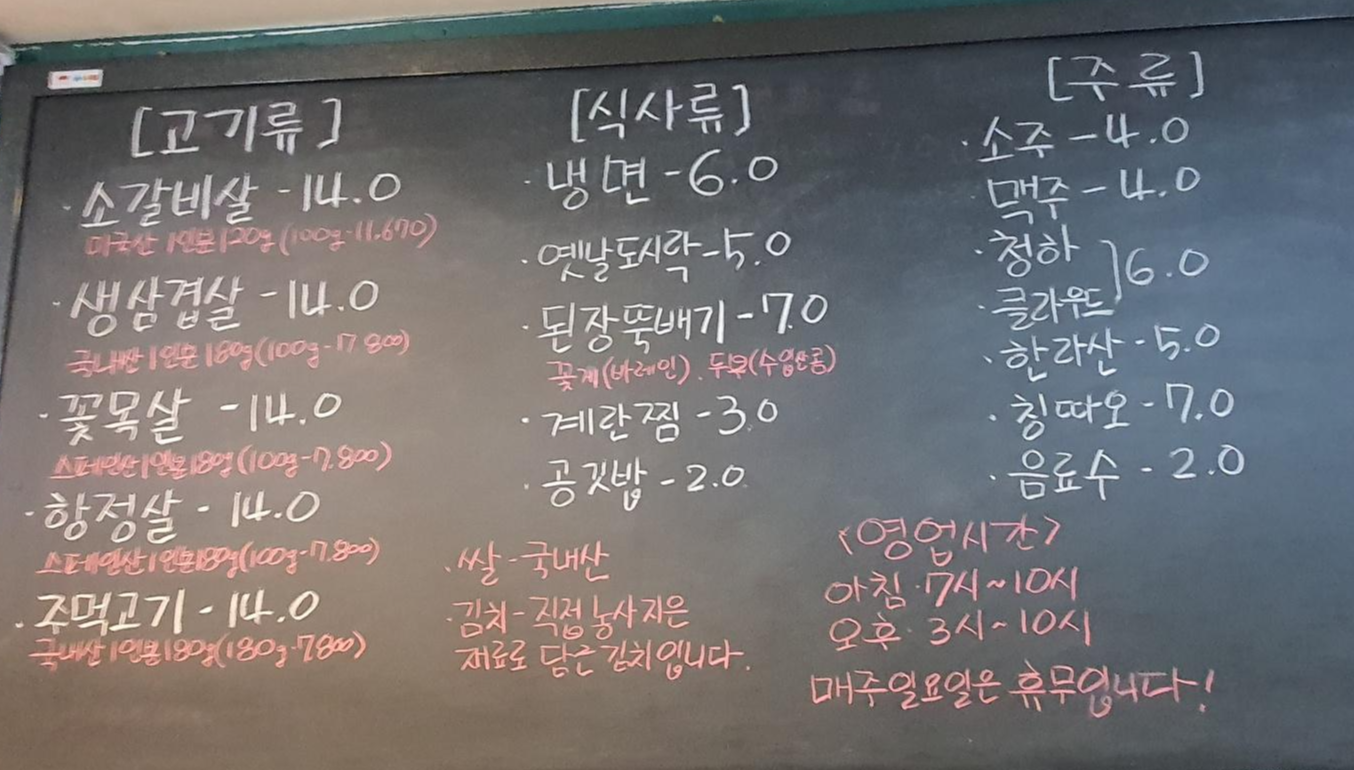 [고기류]
· 소갈비살 - 14.0
미국산 1인분 120g (100g-11.670)
· 생삼겹살 - 14.0
국내산 1인분 180g (100g-17.800)
· 꽃목살 - 14.0
스페인산 1인분 180g (100g-7.800)
· 항정살 - 14.0
스페인산 1인분 180g (100g-7.800)
· 주먹고기 - 14.0
국내산 1인분 180g (180g-7800)
[식사류]
· 냉면 - 6.0
· 옛날도시락 - 5.0
· 된장뚝배기 - 7.0
꽃게(바레인). 두부(수입산콩)
· 계란찜 - 3.0
· 공깃밥 - 2.0
· 쌀 - 국내산
· 김치 - 직접 농사지은
재료로 담근 김치입니다.
[주류]
· 소주 - 4.0
맥주 - 4.0
· 청하
· 클라우드 ] 6.0
· 한라산 - 5.0
· 칭따오 - 7.0
· 음료수 - 2.0
<영업시간>
아침 · 7시~10시
오후 · 3시~10시
매주일요일은 휴무입니다!